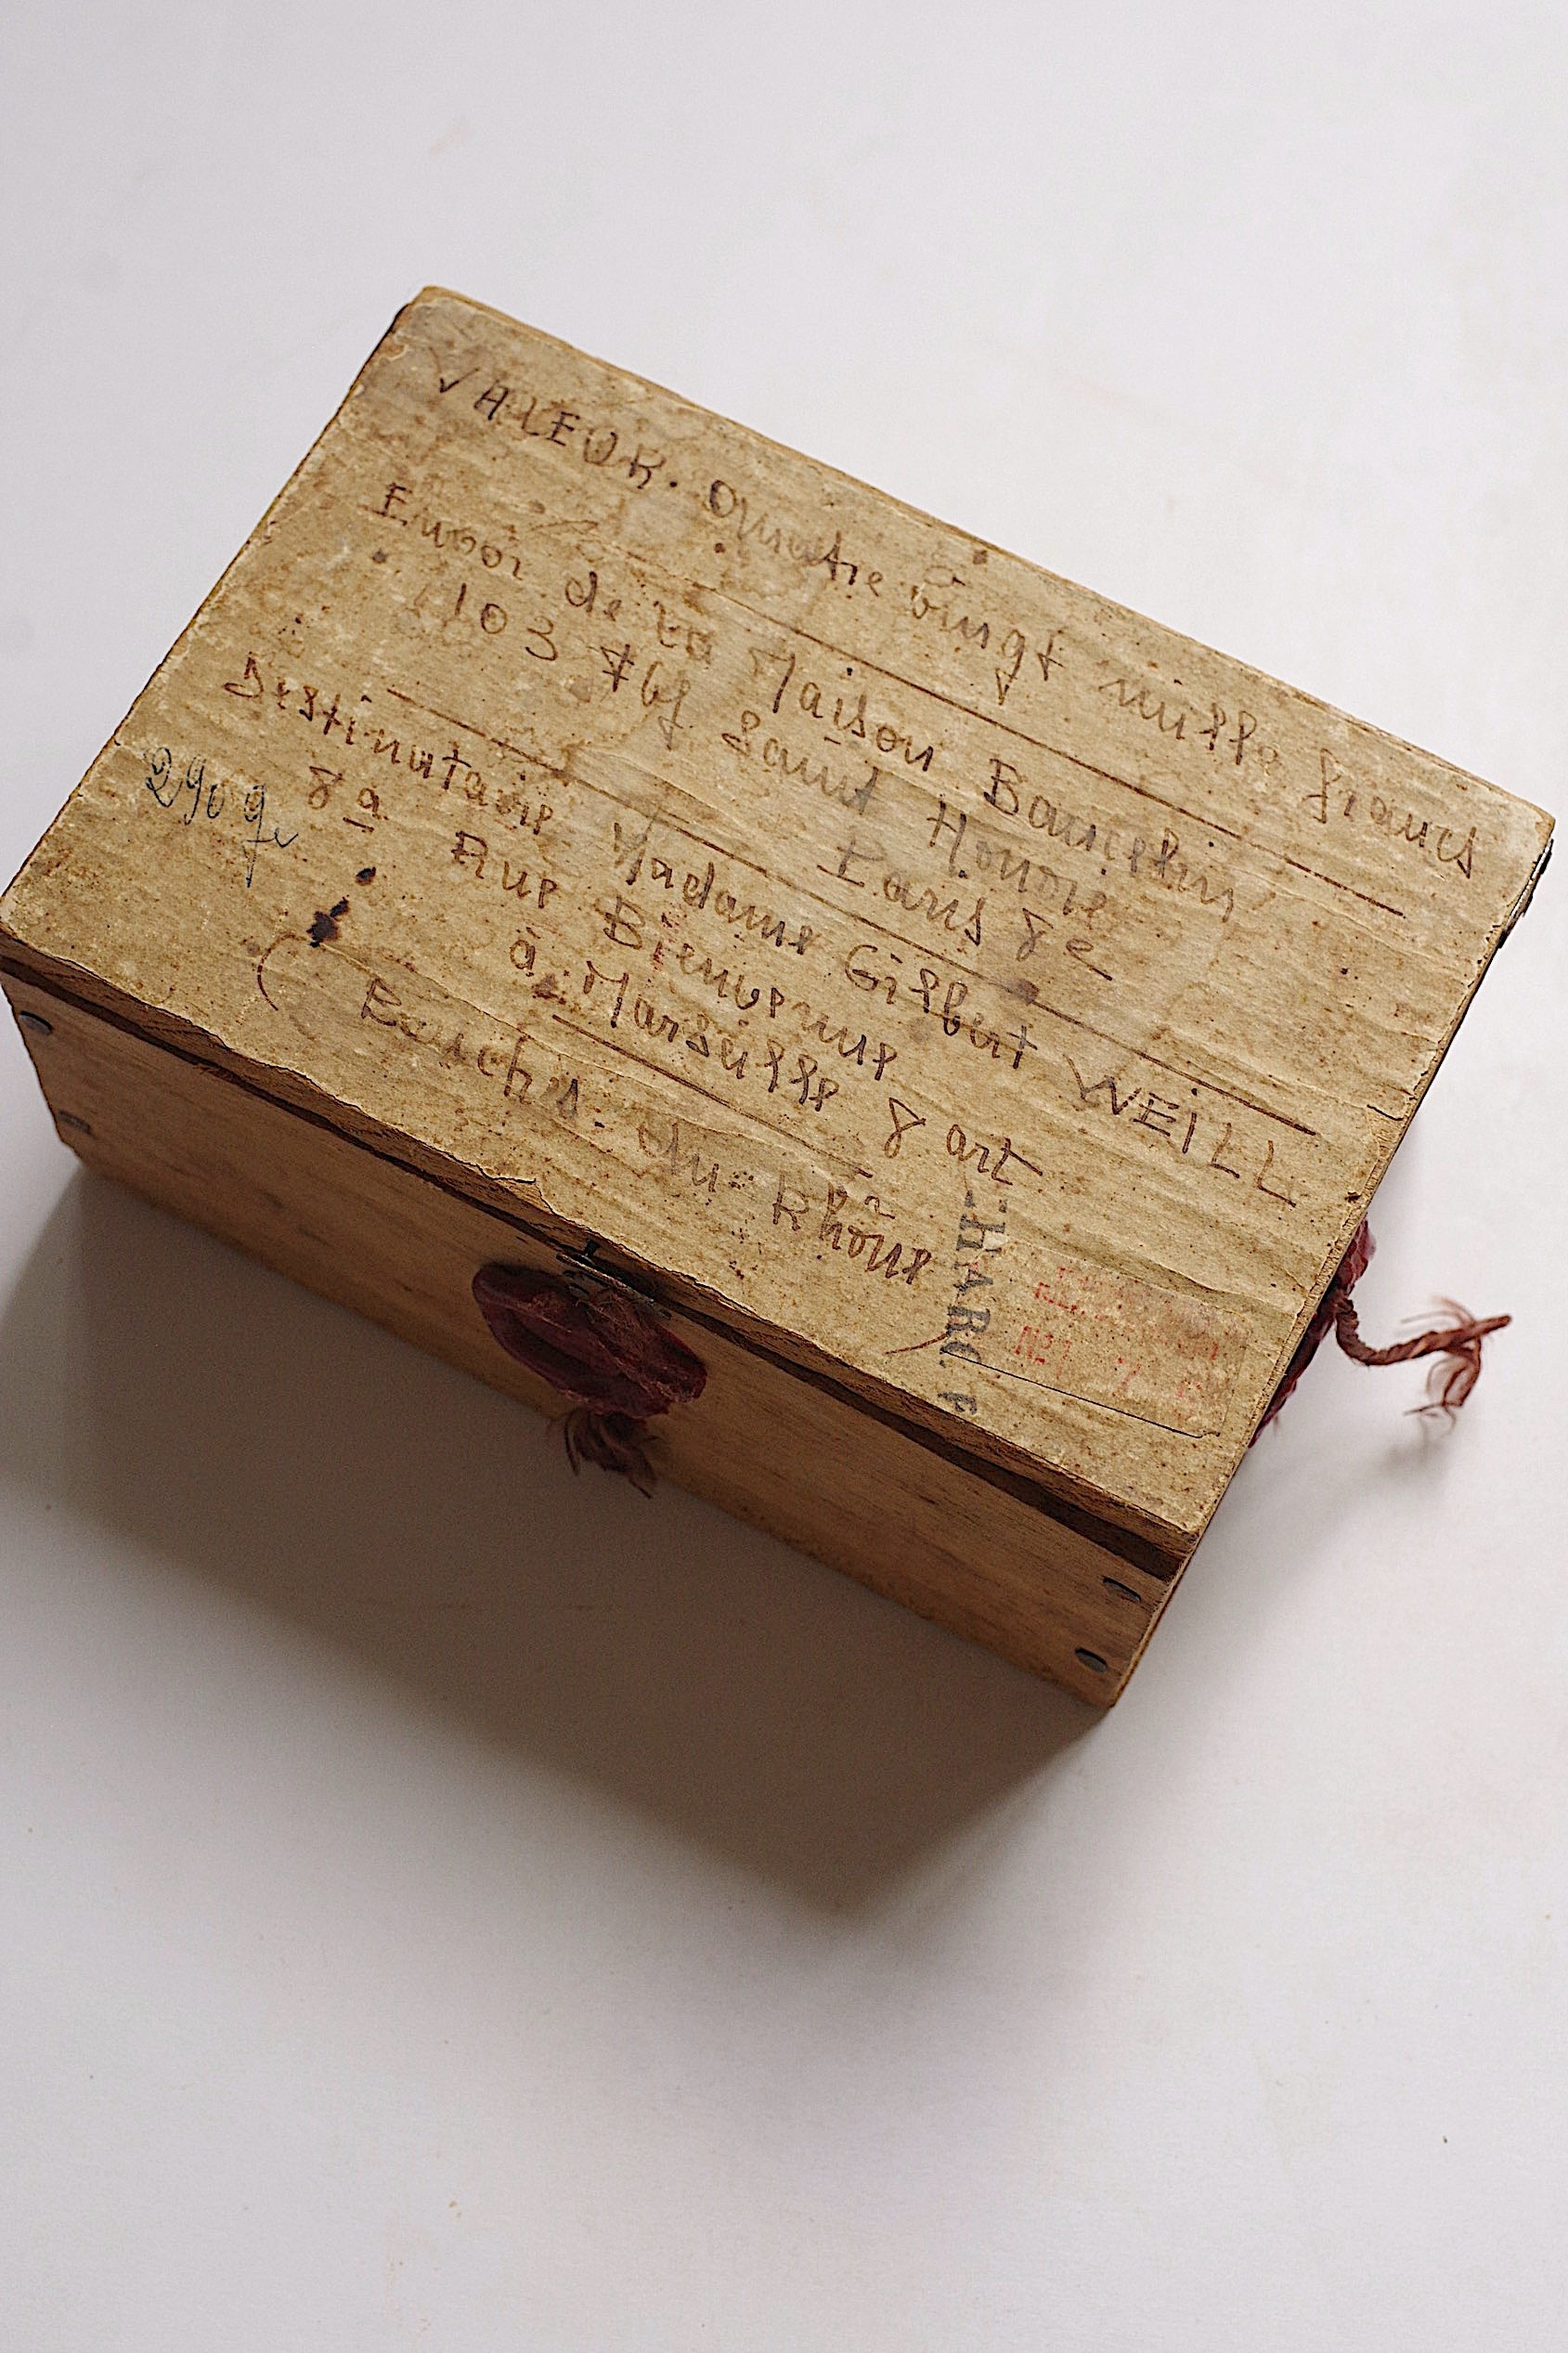 VALEUR. Quatre vingt mille francs
Envoi de la Maison
103 Fbg Saint Honoré
Paris 8e
Destinataire Madame Gilbert WEILL
8 a Rue Bienvenue
à Marseille 8 art
(Bouches. du. Rhône)
290 g
CHARGÉ